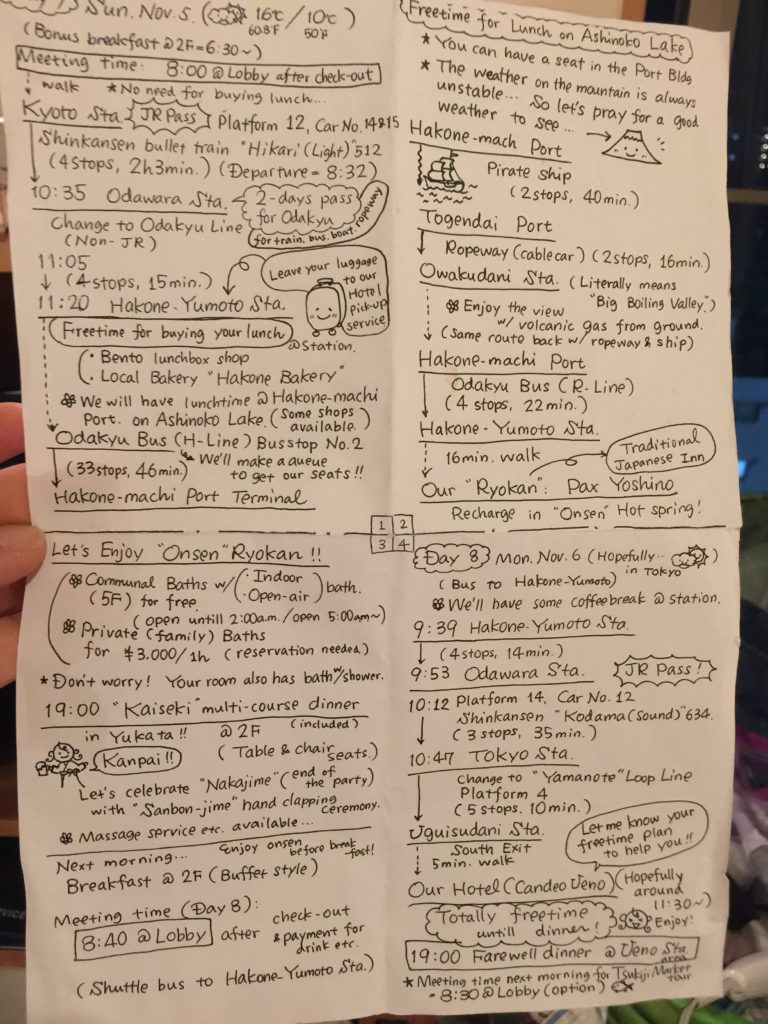 7 Sun. Nov. 5. ( 16℃ / 10℃ )
60.8°F 50°F
(Bonus breakfast @ 2F = 6:30~)
Meeting time: 8:00 @ Lobby after check-out
walk * No need for buying lunch...
Kyoto Sta. JR Pass Platform 12, Car No. 14&15
Shinkansen bullet train "Hikari (Light)" 512
(4stops, 2h3min.) (Departure = 8:32)
10:35 Odawara Sta. 2-days pass for Odakyu
for train. bus. boat. ropeway
Change to Odakyu Line
(Non-JR)
11:05
↓ (4stops, 15min.)
11:20 Hakone-Yumoto Sta.
Leave your luggage
to our
Hotel
pick-up
service
@Station.
Freetime for buying your lunch
• Bento lunchbox shop
• Local Bakery "Hakone Bakery"
We will have lunchtime @ Hakone-machi
Port. on Ashinoko Lake. (Some shops
available.)
Odakyu Bus (H-Line) Busstop No. 2
(33stops, 46min.) We'll make a queue
to get our seats!!
Hakone-machi Port Terminal
Freetime for Lunch on Ashinoko Lake
* You can have a seat in the Port Bldg.
* The weather on the mountain is always
unstable... So let's pray for a good
weather to see... →
Hakone-mach Port
Pirate ship
(2stops, 40min.)
Togendai Port
Ropeway (cablecar) (2stops, 16min.)
Owakudani Sta. (Literally means
"Big Boiling Valley.")
Enjoy the view
w/ volcanic gas from ground.
(Same route back w/ ropeway & ship)
Hakone-machi Port
Odakyu Bus (R-Line)
(4 stops, 22min.)
Hakone-Yumoto Sta.
16min. walk
Traditional
Japanese Inn
Our "Ryokan": Pax Yoshino
Recharge in "Onsen" Hot spring!
1 2
3 4
Let's Enjoy "Onsen" Ryokan !!
Communal Baths w/ (• Indoor
• Open-air) bath.
(5F) for free
(open untill 2:00a.m. / open 5:00am~)
Private (family) Baths
for ¥3.000/1h (reservation needed)
* Don't worry! Your room also has bath w/ shower.
19:00 "Kaiseki" multi-course dinner
in Yukata!! @ 2F (included)
Kanpai!! (Table & chair
seats.)
Let's celebrate "Nakajime" (end of
the party)
with "Sanbon-jime" hand clapping
ceremony.
Massage service etc. available...
Next morning... Enjoy onsen
before breakfast!
Breakfast @ 2F (Buffet style)
Meeting time (Day 8):
8:40 @ Lobby after check-out
& payment for
drink etc.
(Shuttle bus to Hakone-Yumoto Sta.)
Day 8 Mon. Nov. 6 (Hopefully.. )
in TOKYO
(Bus to Hakone-Yumoto)
We'll have some coffeebreak @ station.
9:39 Hakone-Yumoto Sta.
↓ (4stops, 14min.)
9:53 Odawara Sta. JR Pass!
10:12 Platform 14, Car No. 12
Shinkansen "Kodama (Sound)" 634.
(3 stops, 35min.)
10:47 Tokyo Sta.
Change to "Yamanote" Loop Line
Platform 4
(5 stops. 10min.)
Uguisudani Sta.
South Exit
5min. walk
Let me know your
freetime plan
to help you!!
Our Hotel (Candeo Ueno) (Hopefully
around
11:30~)
Totally freetime
untill dinner! Enjoy!
19:00 Farewell dinner @ Ueno Sta.
area
* Meeting time next morning for Tsukiji Market
tour
= 8:30 @ Lobby (option)